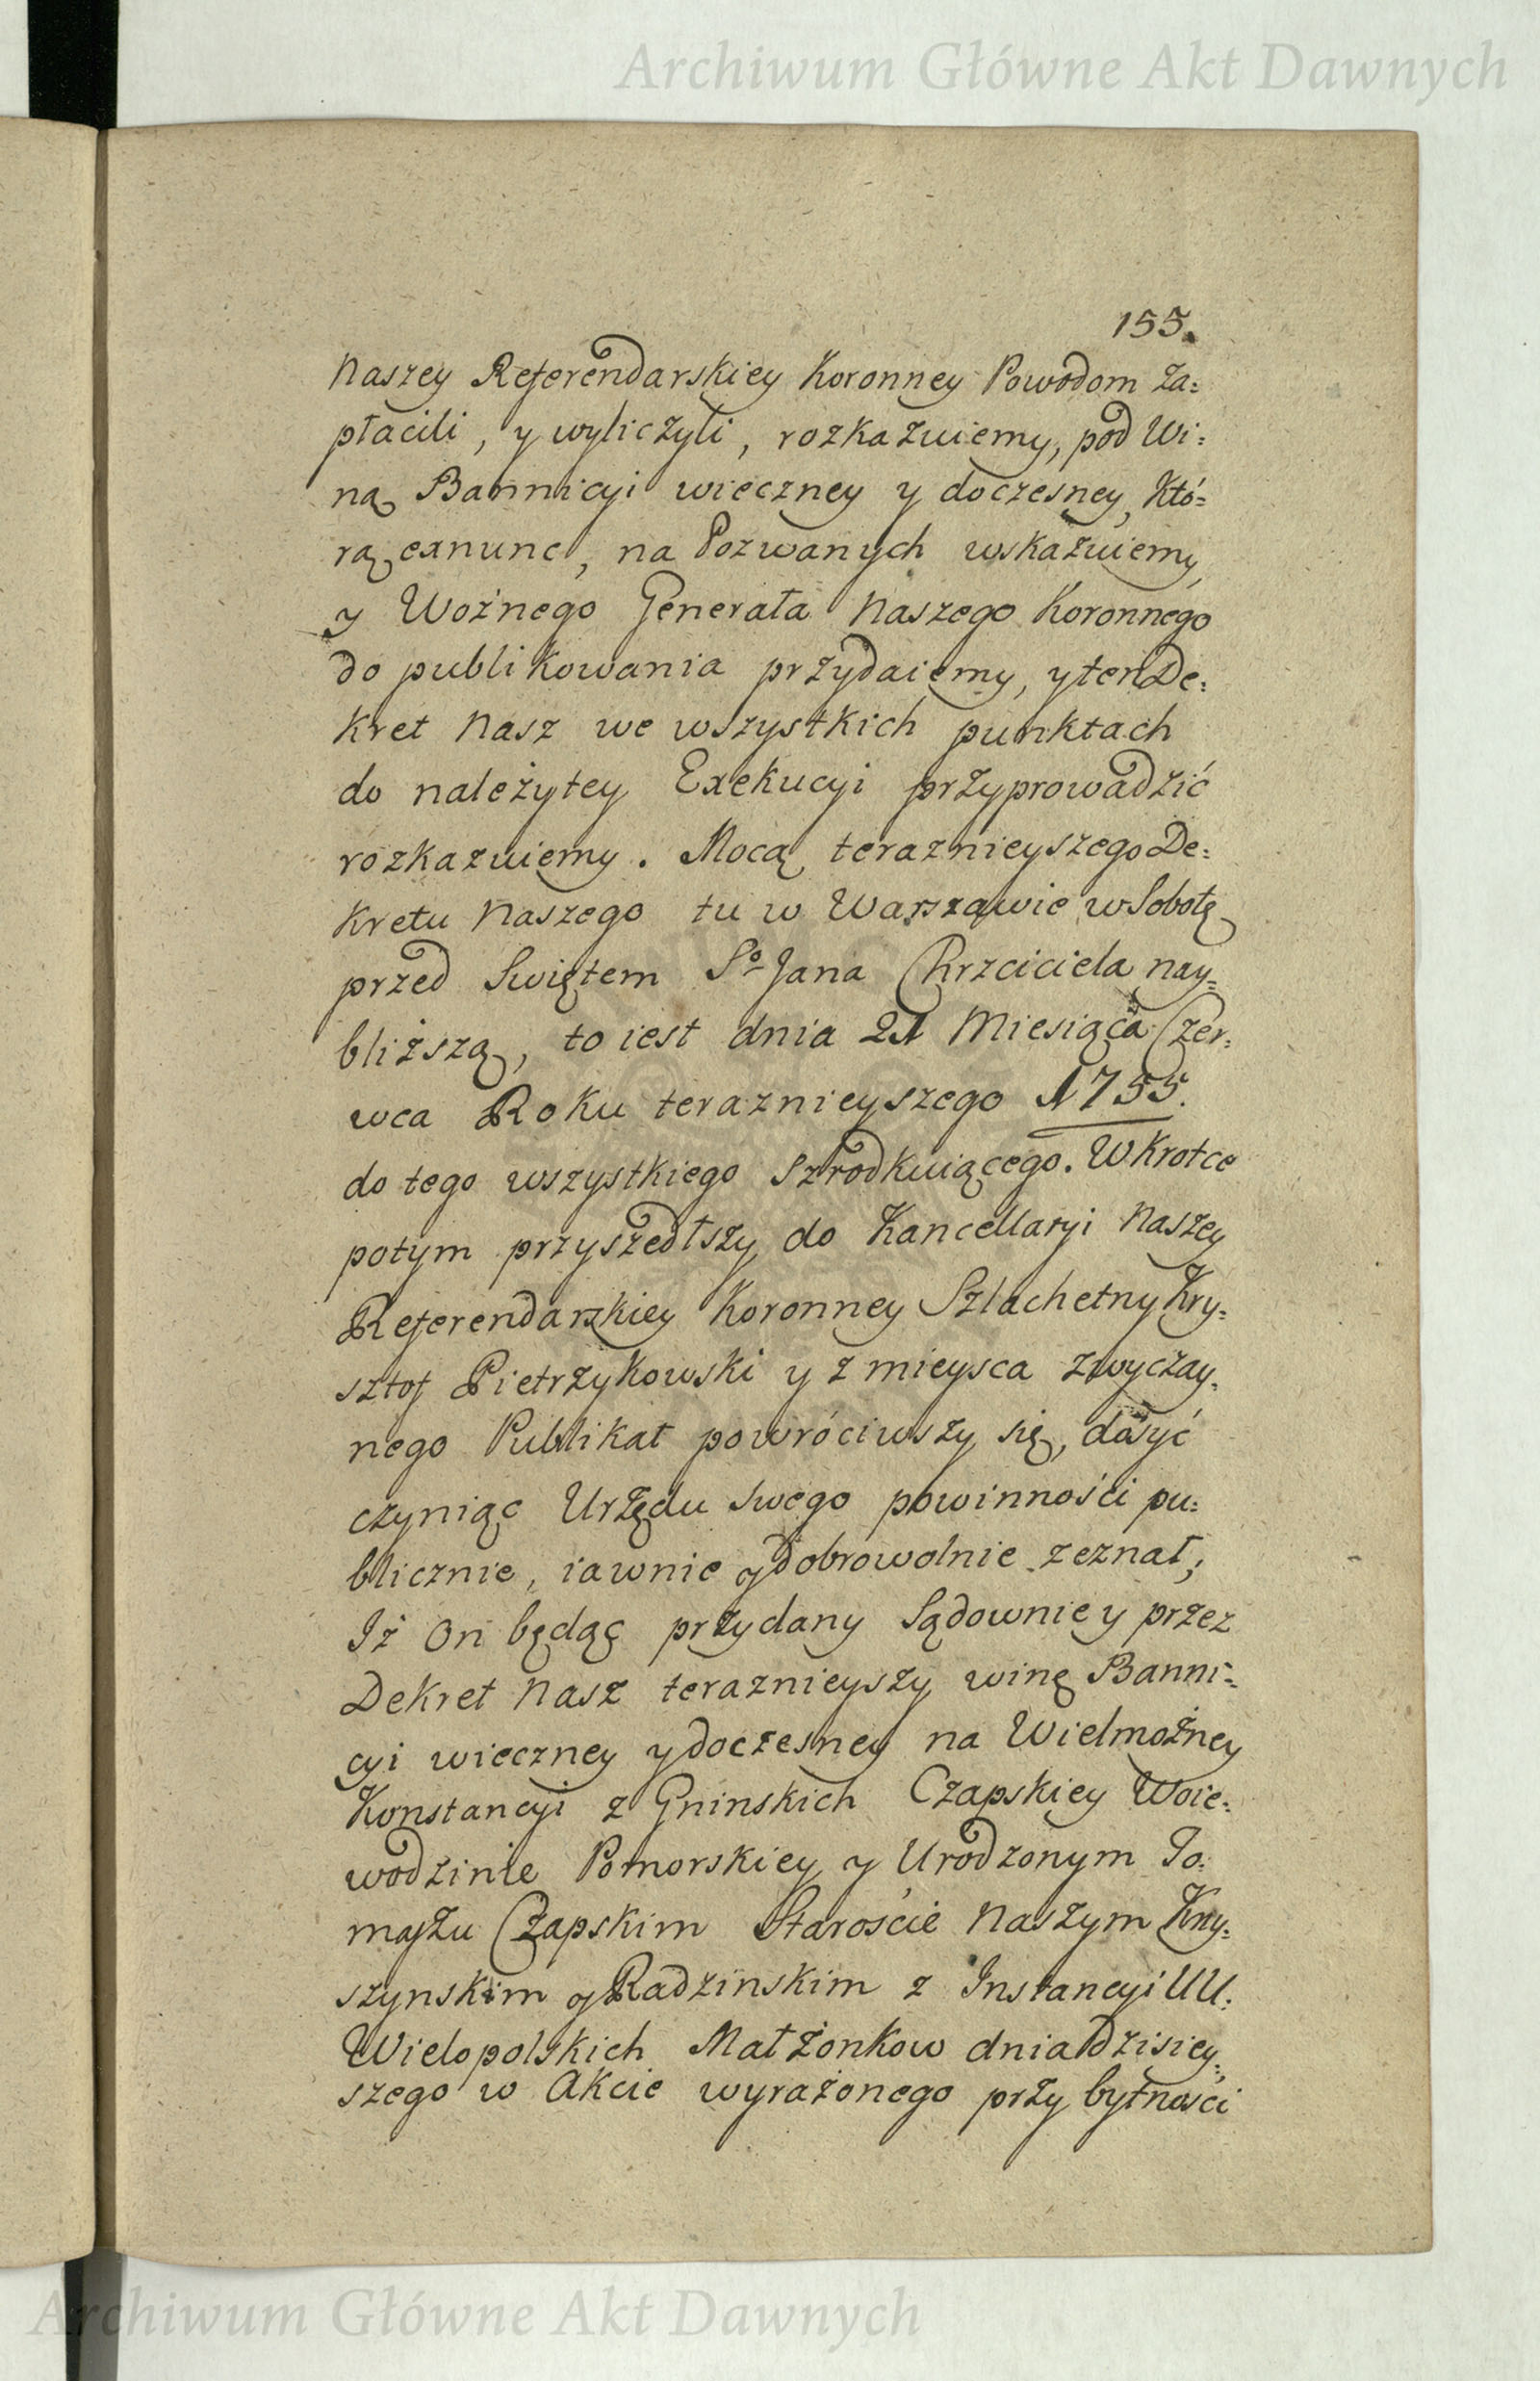 Archiwum Główne Akt Dawnych
155.
Naszey Referendarskiey Koronney Powodom za=
płacili, y wyliczyli, rozkazuiemy, pod Wi=
ną Bannicyi wieczney y doczesney, Któ=
rą exnunc, na Pozwanych wskazuiemy,
y Woźnego Generała Naszego Koronnego
do publikowania przydaiemy, y ten De=
kret Nasz we wszystkich punktach
do należytey Exekucyi przyprowadzić
rozkazuiemy. Mocą teraznieyszego De=
kretu Naszego tu w Warszawie w Sobotę
przed Swiętem Sº Jana Chrzciciela nay=
bliższą, to iest dnia 21 Miesiąca Czer=
wca Roku teraznieyszego 1755.
do tego wszystkiego szrodkuiącego. Wkrotce
potym przyszedłszy do Kancellaryi Naszey
Referendarskiey Koronney Szlachetny Kry=
sztof Pietrzykowski y z mieysca zwyczay=
nego Publikat powróciwszy się, dosyć
czyniąc Urzędu swego powinności pu=
blicznie, iawnie y dobrowolnie zeznał;
Iż On będąc przydany Sądownie y przez
Dekret Nasz teraznieyszy winę Banni=
cyi wieczney y doczesney na Wielmożney
Konstancyi z Gninskich Czapskiey Woie=
wodzinie Pomorskiey y Urodzonym To=
maszu Czapskim Starościе Naszym Kny=
szynskim y Radzinskim z Instancyi UU.
Wielopolskich Małżonkow dnia dzisiey=
szego w Akcie wyrażonego przy bytności
Archiwum Główne Akt Dawnych